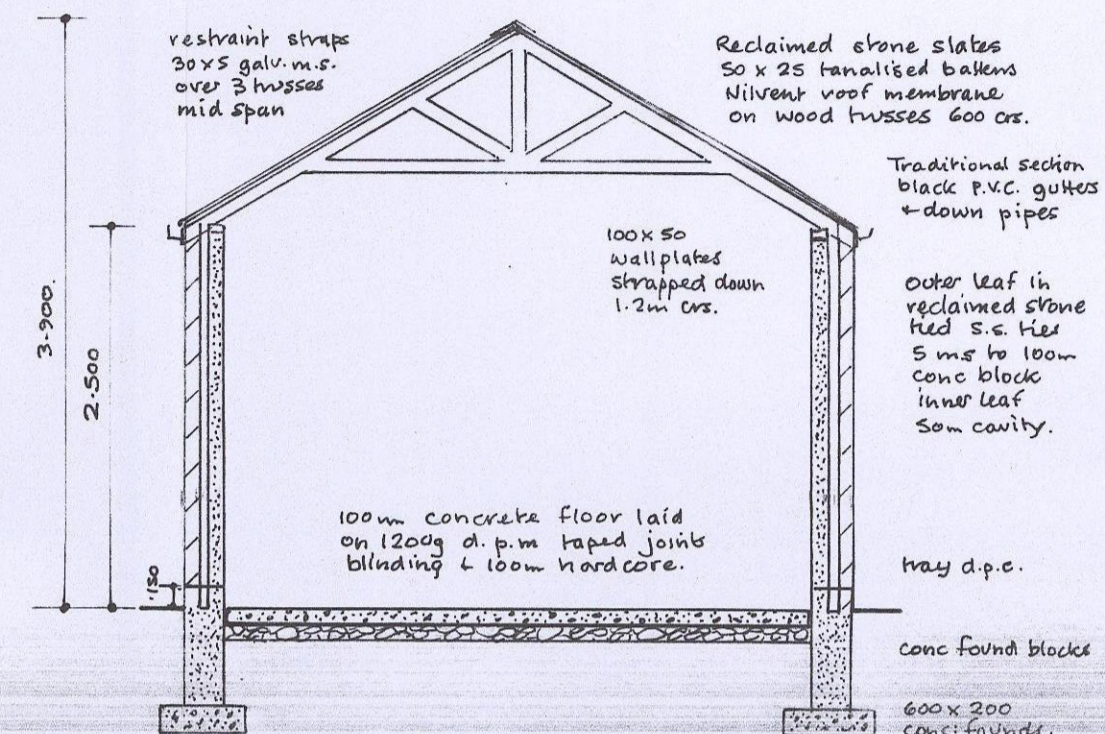 restraint straps
30x5 galv. m.s.
over 3 trusses
mid span
Reclaimed stone slates
50 x 25 tanalised battens
Nilvent roof membrane
on wood trusses 600 crs.
Traditional section
black P.V.C. gutters
+ down pipes
100 x 50
wallplates
strapped down
1.2m crs.
outer leaf in
reclaimed stone
tied S.S. ties
5 ms to 100m
conc block
inner leaf
50m cavity.
3.900.
2.500
.150
100m concrete floor laid
on 1200g d.p.m taped joints
blinding + 100m hardcore.
tray d.p.c.
conc found blocks
600 x 200
conc founds.